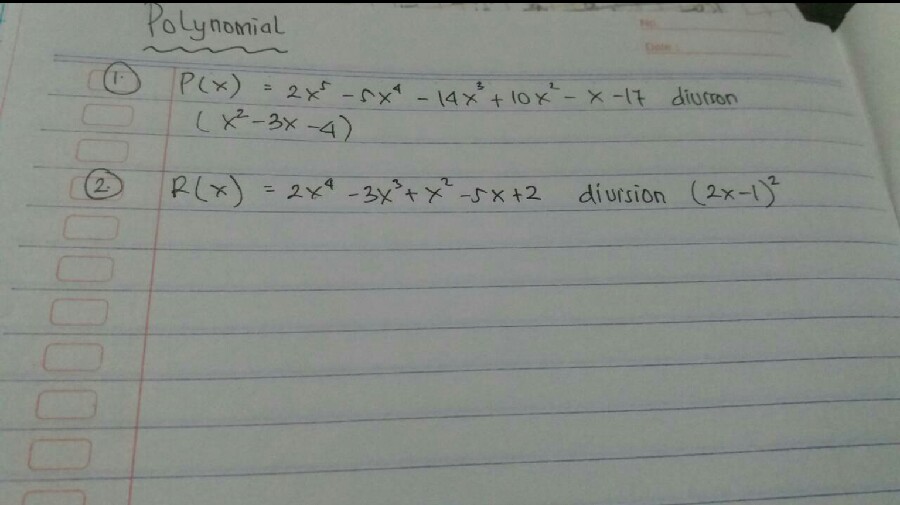 Polynomial
1. P(x) = 2x⁵ - 5x⁴ - 14x³ + 10x² - x - 17 diursion
(x² - 3x - 4)
2. R(x) = 2x⁴ - 3x³ + x² - 5x + 2 diursion (2x-1)²